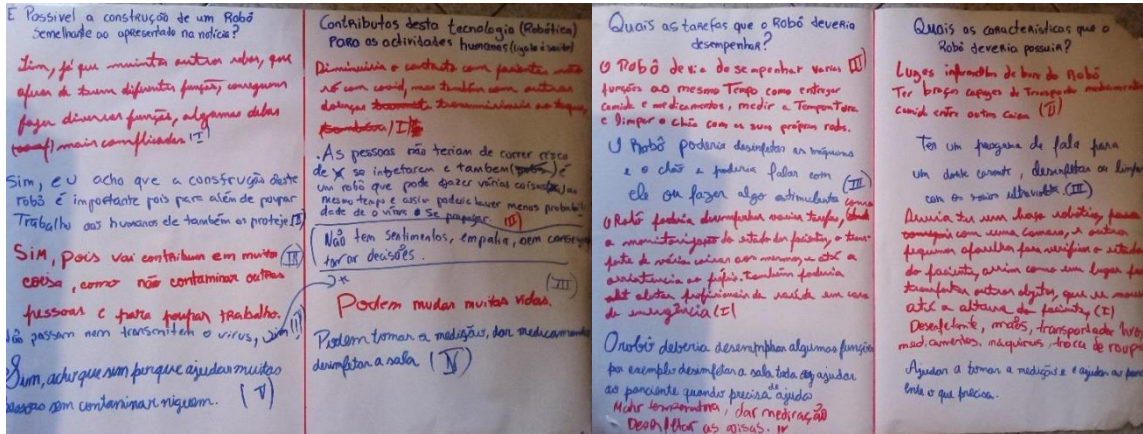 É Possivel a construção de um Robô
semelhante ao apresentado na notícia?
Sim, já que muintos outros robos, que
apesar de terem diferentes funções, conseguem
fazer diversas função, algumas delas
mais complicadas (I)
Sim, eu acho que a construção deste
robô é importante pois para além de poupar
Trabalho aos humanos ele também os proteje (II)
Sim, pois vai contribuir em muita (III)
coisa, como não contaminar outras
pessoas e para poupar trabalho.
Não passam nem transmitem o vírus, sim
Sim, acho que sim porque ajudar muitas
pessoas sem contaminar niguem. (V)
Contributos desta tecnologia (Robótica)
PARA as actividades humanas (ligado à saúde)
Diminuiria o contacto com pacientes não
só com covid, mas também com outras
doenças transmissiveis ao toque,
(I)
. As pessoas não teriam de correr risco
de se infetarem e tambem é
um robô que pode fazer várias coisas ao
mesmo tempo e assim poderia haver menos probabili-
dade de o vírus se propagar. (II)
Não tem sentimentos, empatia, nem consegue
tomar decisões.
(III)
Podem mudar muitas vidas.
Podem tomar a medição, dar medicamento
desinfetar a sala (IV)
Quais as tarefas que o Robô deveria
desempenhar?
O Robô devia desempenhar varias (II)
funções ao mesmo Tempo como entregar
comida e medicamentos, medir a Temperatura
e limpar o chão com as suas próprias rodas.
O Robô poderia desinfetar as máquinas
e o chão e poderia falar com (III)
ele ou fazer algo estimulante como
O Robô poderia desempenhar varias tarefas, desde
a monitorização do estado do paciente, o trans-
porte de várias coisas aos mesmos e até a
assistencia ao próprio. Também poderia
alertar profissionais de saúde em caso
de emergência (I)
O robô deveria desempenhar algumas funções
por exemplo desinfetar a sala toda ajudar
ao panciente quando precisa de ajuda
Medir temperatura, dar medicação
Desenfetar as coisas. IV
Quais as características que o
Robô deveria possuir?
Luzes infravermelhas de bom do Robô
Ter braços capazes de Transportar medicamentos
comida entre outras coisas (II)
Ter um programa de fala para
um doente carente, desinfetar ou limpar
com os raios ultravioleta (III)
Deveria ter um braço robótico,
uma camara, e outros
pequenos aparelhos para verificar o estado
do paciente, assim como um lugar para
transportar outros objetos, que se mova
até a altura do paciente, (I)
Desenfetante, mãos, transportador
medicamentos, máquinas, troca de roupa
Ajudar a tomar a medição e ajudar ao panci-
ente o que precisa.